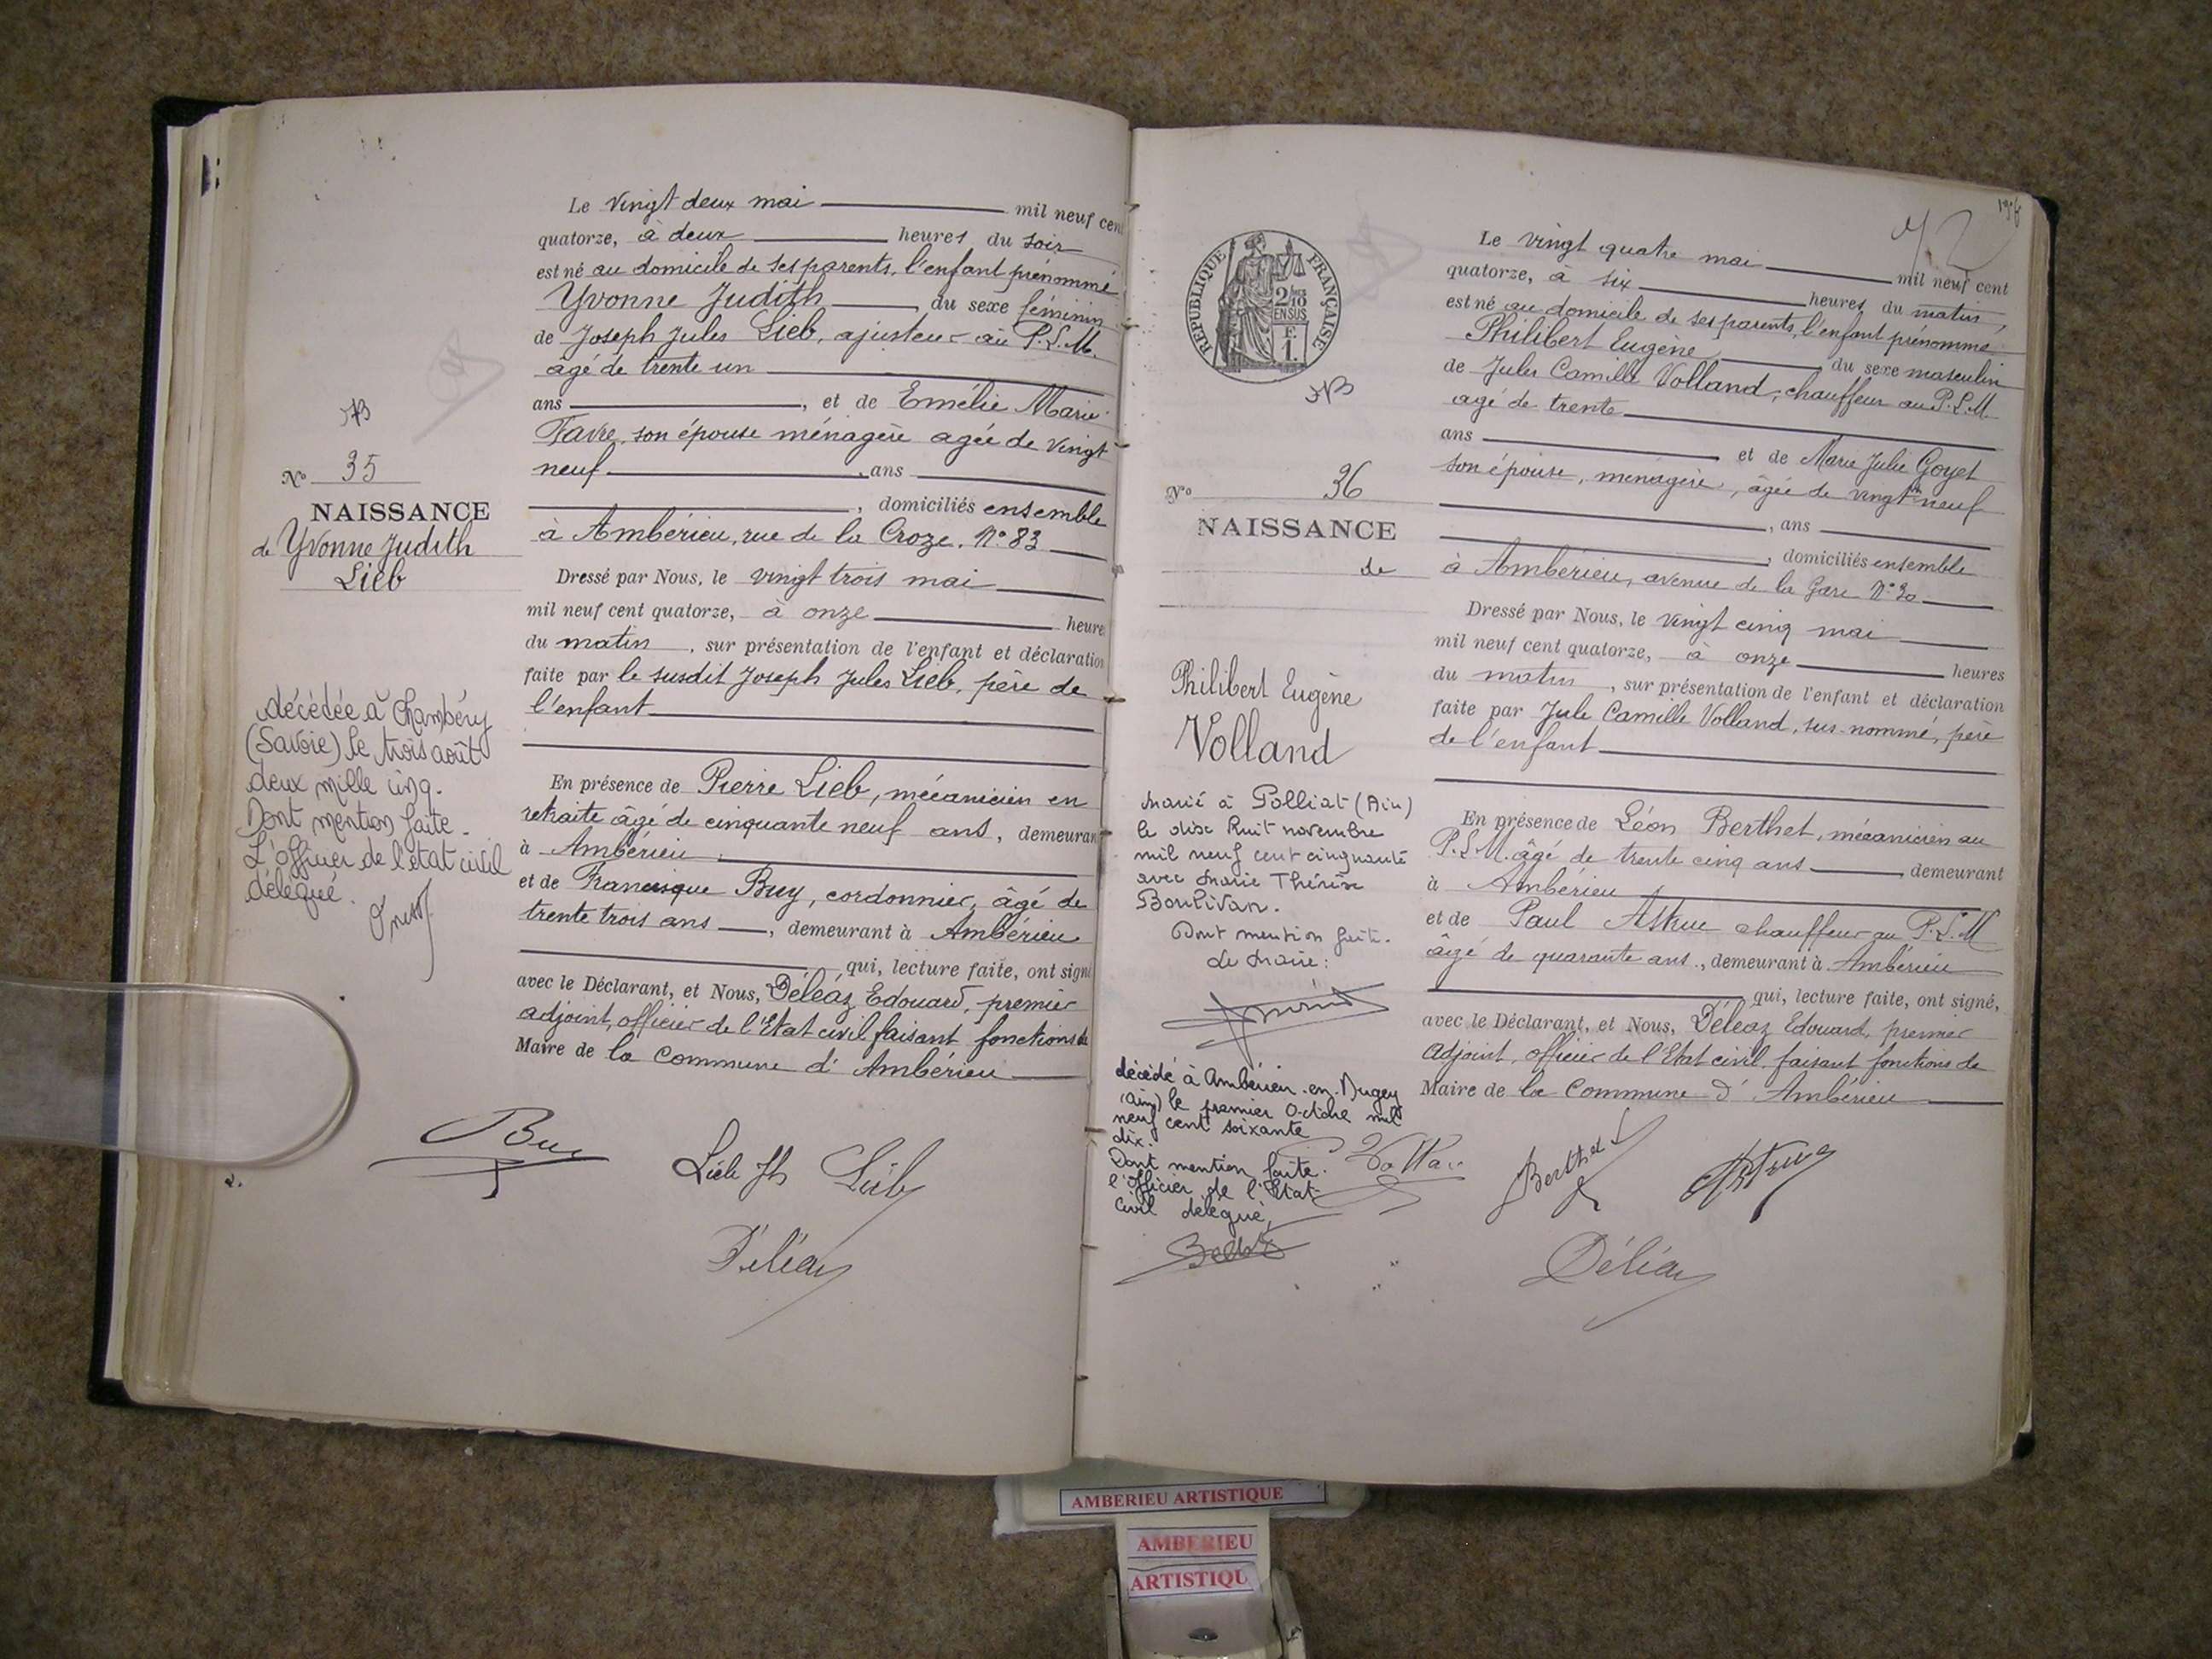 Le vingt deux mai mil neuf cent
quatorze, à deux heures du soir
est né au domicile de ses parents, l'enfant prénommé
Yvonne Judith, du sexe féminin
de Joseph Jules Lieb, ajusteur au P.L.M.
agé de trente un
ans, et de Emélie Marie
Favre, son épouse ménagère agée de vingt
neuf, ans
, domiciliés ensemble
à Ambérieu, rue de la Croze, N° 83
Dressé par Nous, le vingt trois mai
mil neuf cent quatorze, à onze heure
du matin, sur présentation de l'enfant et déclaration
faite par le susdit Joseph Jules Lieb, père de
l'enfant
En présence de Pierre Lieb, mécanicien en
retraite âgé de cinquante neuf ans, demeurant
à Ambérieu
et de Francisque Buy, cordonnier, âgé de
trente trois ans, demeurant à Ambérieu
, qui, lecture faite, ont signé
avec le Déclarant, et Nous, Déléaz Edouard, premier
adjoint, officier de l'Etat civil faisant fonctions de
Maire de la Commune d'Ambérieu
N° 35
NAISSANCE
de Yvonne Judith
Lieb
décédée à Chambéry
(Savoie) le trois août
deux mille cinq.
Dont mention faite.
L'officier de l'état civil
délégué.
Buy
Lieb Jh Lieb
Déléaz
RÉPUBLIQUE FRANÇAISE
2/10
EN SUS
F.
1.
N° 36
NAISSANCE
de
Philibert Eugène
Volland
Marié à Polliat (Ain)
le dix huit novembre
mil neuf cent cinquante
avec Marie Thérèse
Boulivan.
Dont mention faite.
Le Maire:
décédé à Ambérieu-en-Bugey
(Ain) le premier Octobre mil
neuf cent soixante
dix.
Dont mention faite.
l'Officier de l'Etat
Civil délégué,
Le vingt quatre mai mil neuf cent
quatorze, à six heures du matin,
est né au domicile de ses parents, l'enfant prénommé
Philibert Eugène, du sexe masculin
de Jules Camille Volland, chauffeur au P.L.M
agé de trente
ans et de Marie Julie Goyet
son épouse, ménagère, âgée de vingt neuf
, ans
, domiciliés ensemble
à Ambérieu, avenue de la Gare N° 30
Dressé par Nous, le vingt cinq mai
mil neuf cent quatorze, à onze heures
du matin, sur présentation de l'enfant et déclaration
faite par Jule Camille Volland, sus-nommé, père
de l'enfant
En présence de Léon Berthet, mécanicien au
P.L.M. âgé de trente cinq ans, demeurant
à Ambérieu
et de Paul Astrue chauffeur au P.L.M
âgé de quarante ans, demeurant à Ambérieu
qui, lecture faite, ont signé,
avec le Déclarant, et Nous, Déléaz Edouard, premier
Adjoint, officier de l'Etat civil, faisant fonctions de
Maire de la Commune d'Ambérieu
Berthet
Astrue
Déléaz
AMBERIEU ARTISTIQUE
AMBERIEU
ARTISTIQU